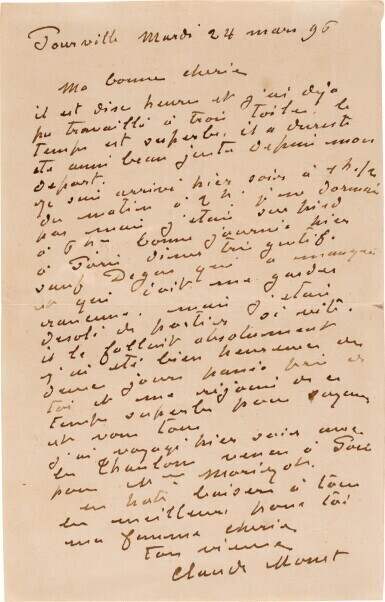 Pourville Mardi 24 mars 96
Ma bonne cherie
il est dix heure et j'ai déja
pu travaillé à trois toile, le
temps est superbe, il a du reste
été aussi beau juste depuis mon
départ.
je suis arrivé hier soir à 1 h. 1/2
du matin à 2 h. j'me dormais
pas mais j'étais sur pied
à 6 h bonne journée hier
à Paris diner très
sauf Degas qui a manqué
et qui
mais j'étais
désolé de partir si vite.
il le fallait absolument
j'ai été bien heureux des
deux jours passés près de
toi et me réjouis de ce
temps superbe pour
et vous tous
j'ai voyagé hier soir avec
les venus à Paris
pour
en hate baisers à tous
les meilleurs pour toi
ma femme cherie
ton vieux
Claude Monet